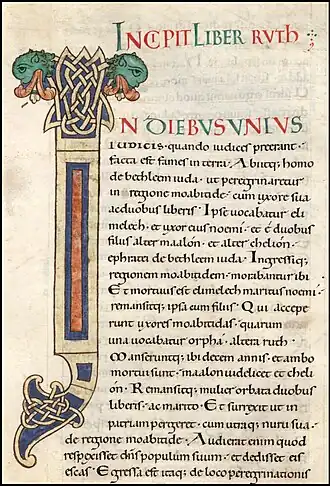 INCIPIT LIBER RUTH
IN DIEBUS UNIUS
IUDICIS · quando iudices preerant ·
facta est fames in terra; Abiitq; homo
de bethleem iuda · ut peregrinaretur
in regione moabitide · cum uxore sua
ac duobus liberis · Ipse vocabatur eli
melech · et uxor eius noemi · et e duobus
filius alter maalon · et alter chelion ·
ephratei de bethleem iuda · Ingressiq;
regionem moabitidem · morabantur ibi ·
Et mortuus est elimelech maritus noemi ·
remansitq; ipsa cum filiis · Qui accepe
runt uxores moabitidas · quarum
una vocabatur orpha · altera ruth ·
Manseruntq; ibi decem annis · et ambo
mortui sunt · maalon uidelicet et cheli
on · Remansitq; mulier orbata duobus
liberis · ac marito · Et surgeret ut in
patriam pergeret · cum utraq; nuru sua ·
de regione moabitide · Audierat enim quod
respexisset dns populum suum · et dedisset eis
escas · Egressa est itaq; de loco peregrinationis